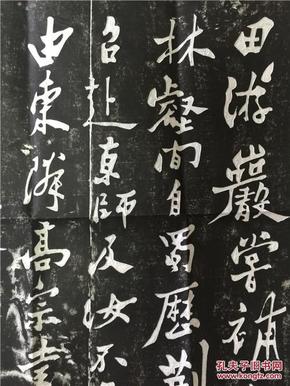 田游巖嘗補
林壑間自蜀歷荊
召赴京師及汝不
由東隣高宗幸
孔夫子旧书网